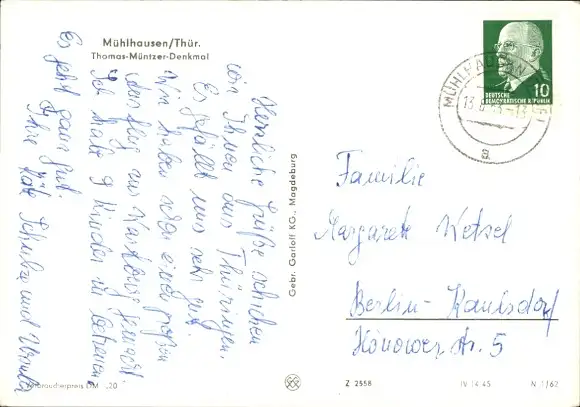 Mühlhausen/Thür.
Thomas-Müntzer-Denkmal
Herzliche Grüße schicken
wir Ihnen aus Thüringen.
Es gefällt uns sehr gut.
Wir haben sogar einen großen
Ausflug zur Wartburg gemacht.
Ich habe 9 Kinder zu betreuen.
Es geht ganz gut.
Ihre Käte Schulze und Ursula
Verbraucherpreis DM -,20
Gebr. Garloff KG., Magdeburg
10
DEUTSCHE
DEMOKRATISCHE REPUBLIK
MÜHLHAUSEN
g
Familie
Margarete Wetzel
Berlin-Kaulsdorf
Hönower Str. 5
Z 2558
IV 14 45
N 1/62